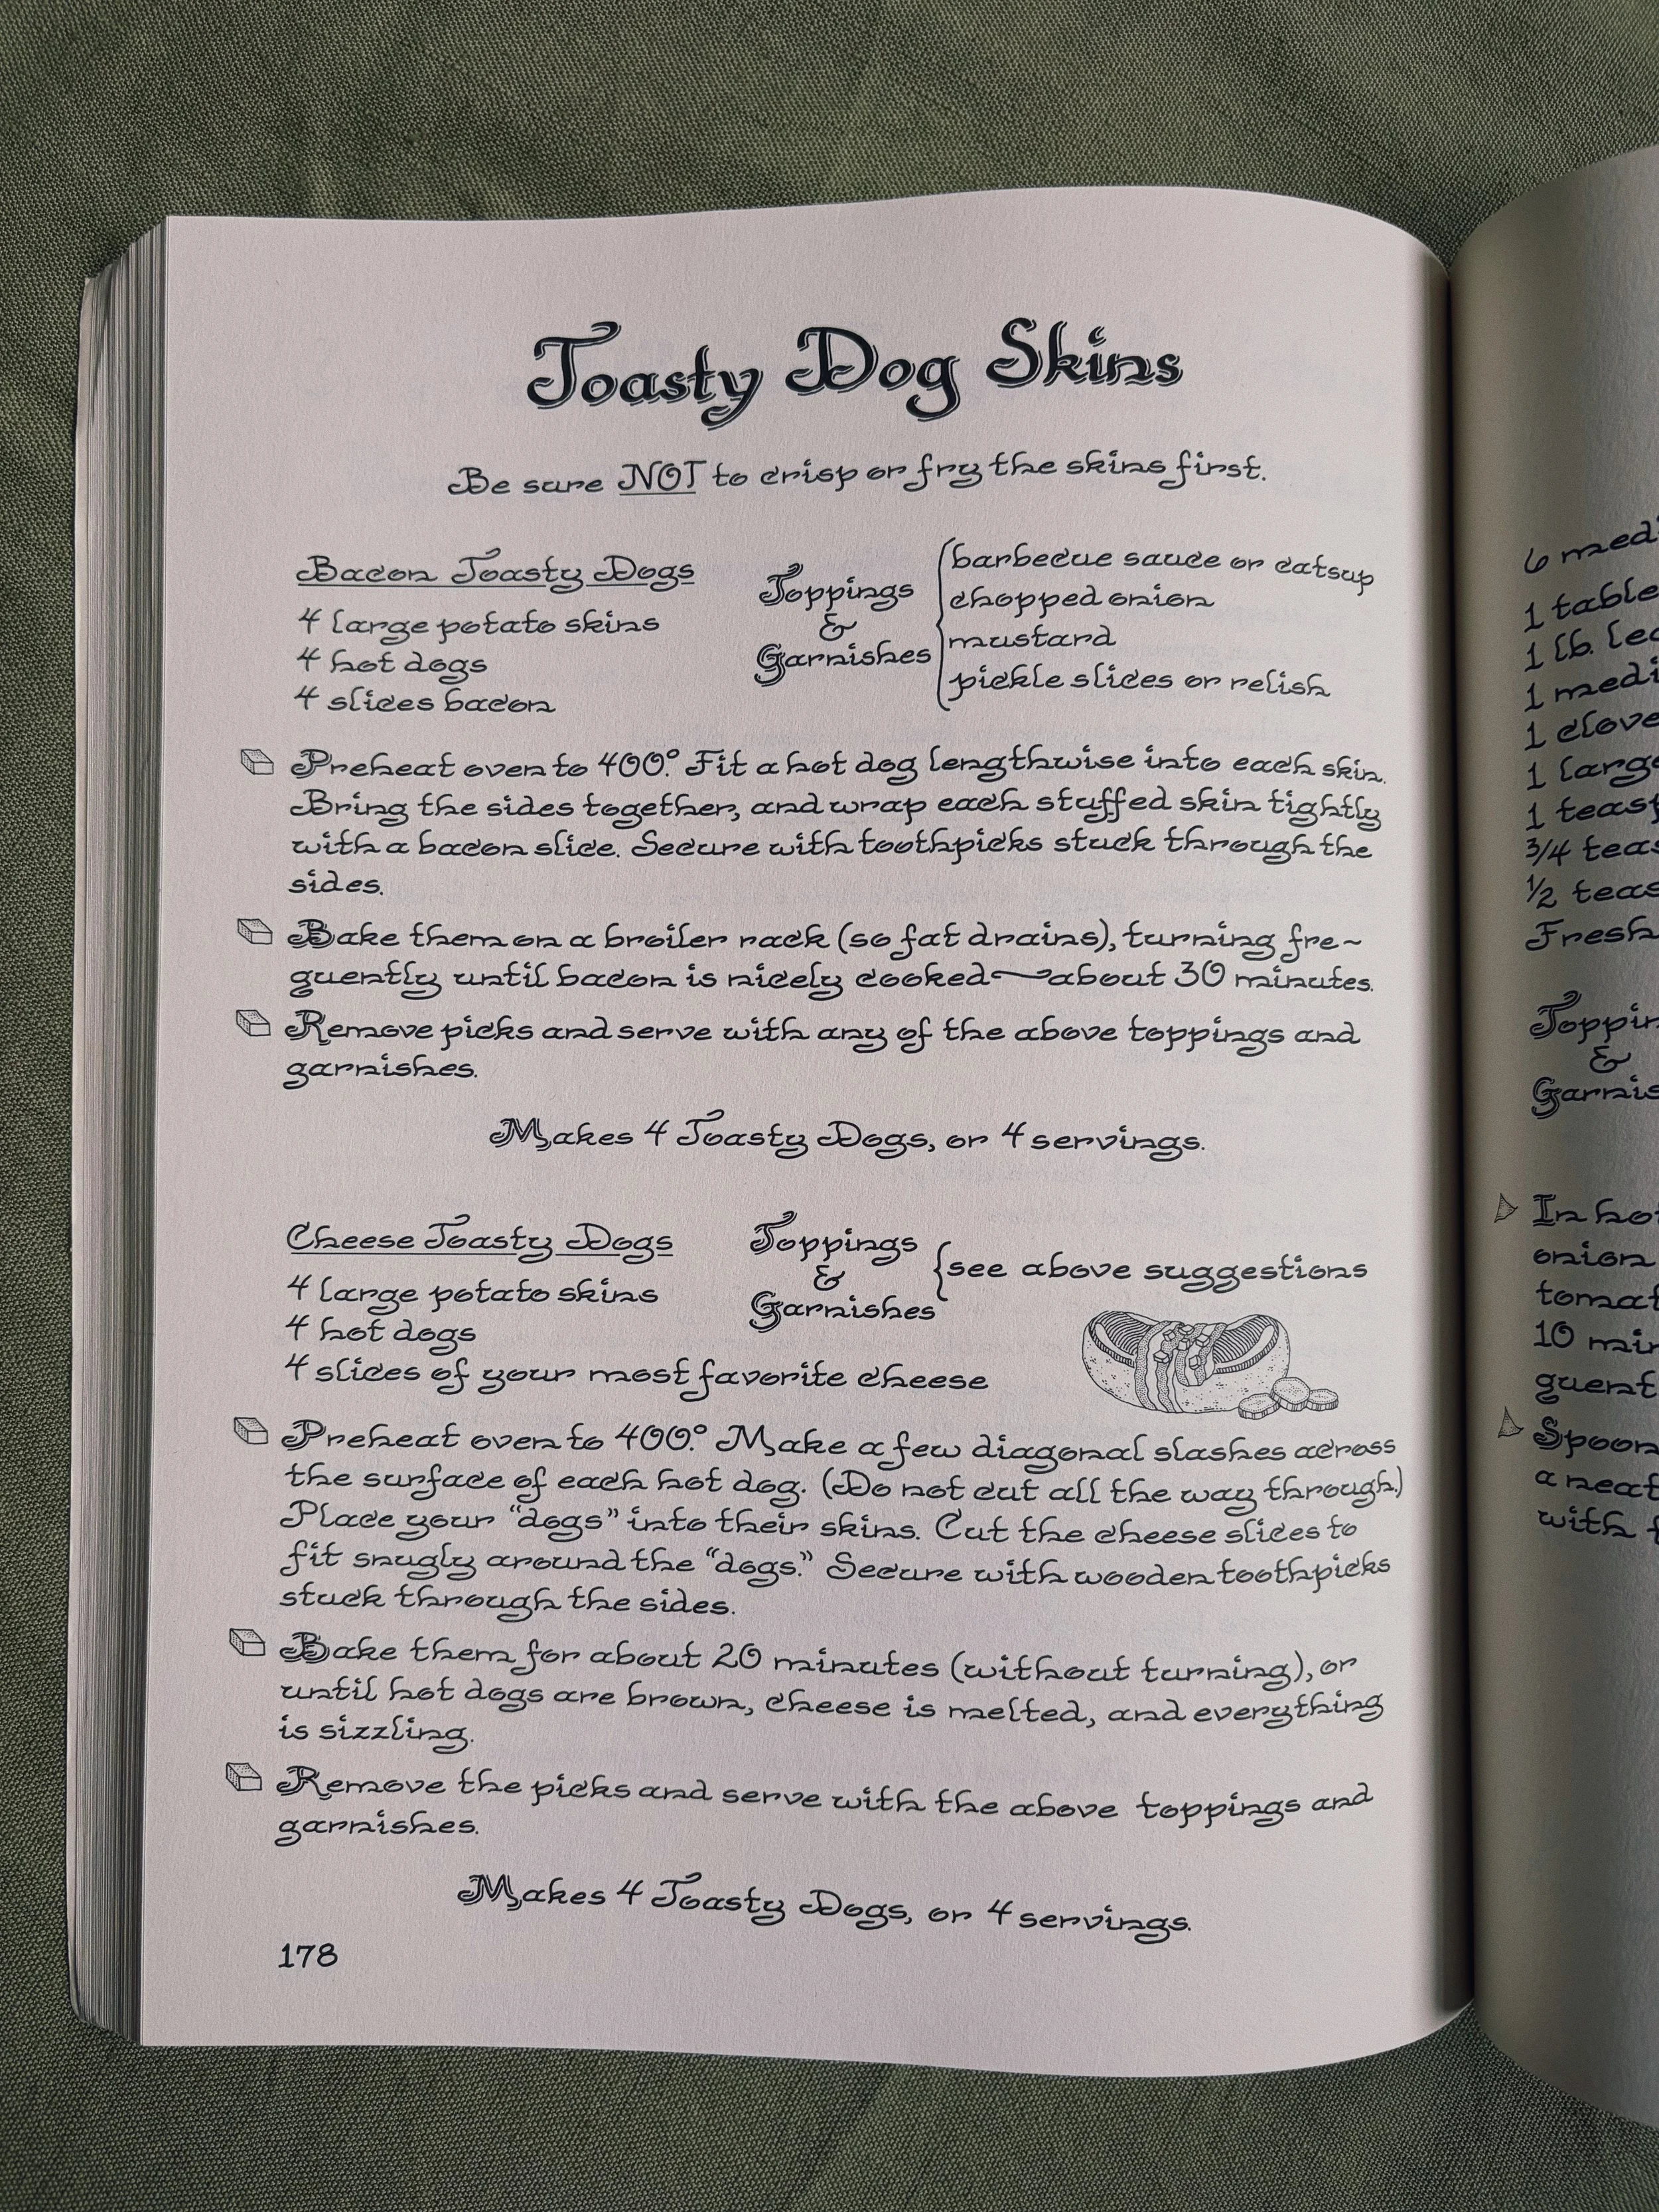 Toasty Dog Skins
Be sure NOT to crisp or fry the skins first.
Bacon Toasty Dogs
4 large potato skins
4 hot dogs
4 slices bacon
Toppings
&
Garnishes
barbecue sauce or catsup
chopped onion
mustard
pickle slices or relish
Preheat oven to 400°. Fit a hot dog lengthwise into each skin.
Bring the sides together, and wrap each stuffed skin tightly
with a bacon slice. Secure with toothpicks stuck through the
sides.
Bake them on a broiler rack (so fat drains), turning fre~
quently until bacon is nicely cooked—about 30 minutes.
Remove picks and serve with any of the above toppings and
garnishes.
Makes 4 Toasty Dogs, or 4 servings.
Cheese Toasty Dogs
4 large potato skins
4 hot dogs
4 slices of your most favorite cheese
Toppings
&
Garnishes
see above suggestions
Preheat oven to 400°. Make a few diagonal slashes across
the surface of each hot dog. (Do not cut all the way through.)
Place your "dogs" into their skins. Cut the cheese slices to
fit snugly around the "dogs." Secure with wooden toothpicks
stuck through the sides.
Bake them for about 20 minutes (without turning), or
until hot dogs are brown, cheese is melted, and everything
is sizzling.
Remove the picks and serve with the above toppings and
garnishes.
Makes 4 Toasty Dogs, or 4 servings.
178
6
1
1 lb.
1
1
1
1
3/4
1/2
&
In
onion
10
Spoon
a
with